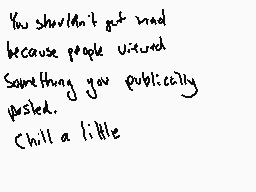 You shouldn't get mad
because people viewed
Something you publically
posted.
Chill a little